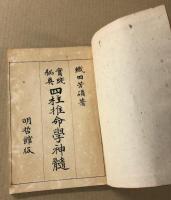 織田芳湞著
實錢
秘奥
四柱推命學神髓
明哲館版